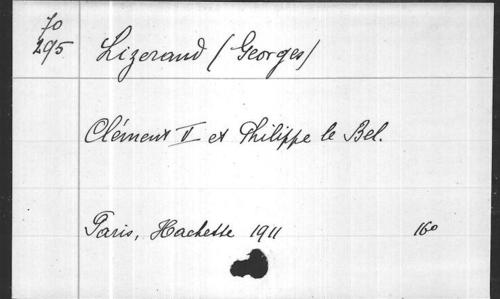 Jo
295 Lizerand (Georges)
Clément II et Philippe le Bel.
Paris, Hachette 1911 16o